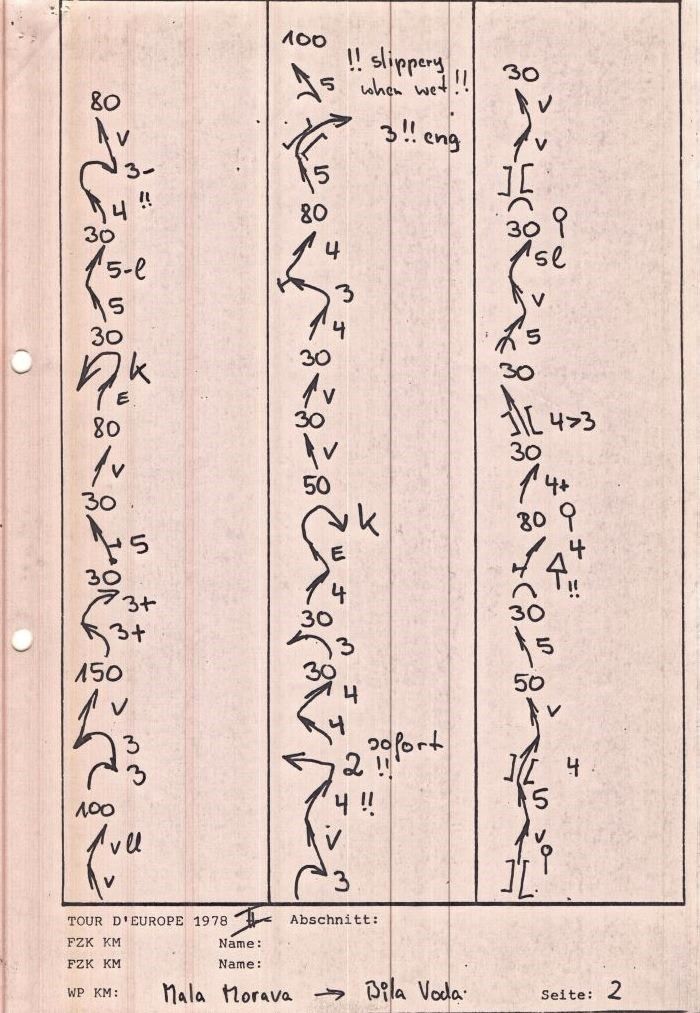 80
V
3-
4 !!
30
5-l
5
30
K
E
80
V
30
5
30
3+
3+
150
V
3
3
100
V ll
V
100
!! slippery
when wet !!
5
3 !! eng
5
80
4
3
4
30
V
30
V
50
K
E
4
30
3
30
4
4
sofort
2 !!
4 !!
V
3
30
V
V
] [
30
5l
V
5
30
] [ 4>3
30
4+
80
4
!!
30
5
50
V
] [ 4
5
V
] [
TOUR D'EUROPE 1978 II Abschnitt:
FZK KM Name:
FZK KM Name:
WP KM: Mala Morava → Bila Voda Seite: 2